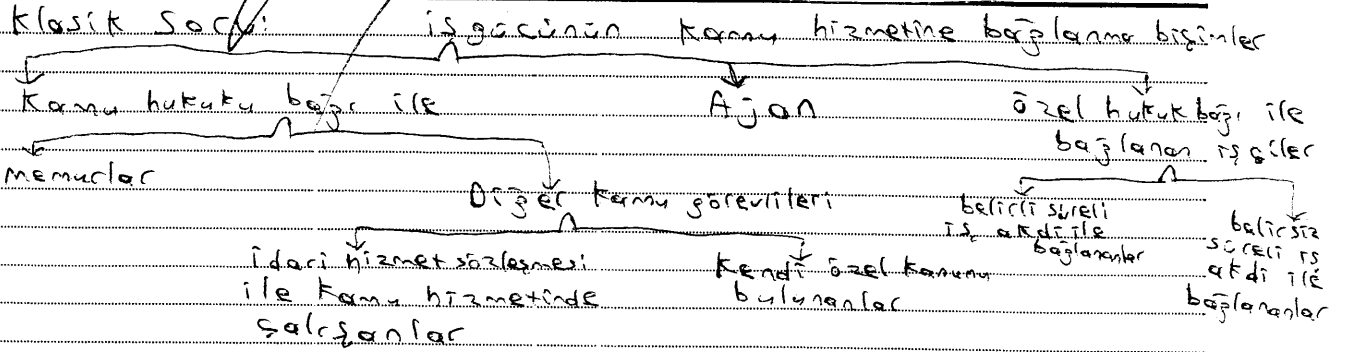 Klasik Soru: işgücünün kamu hizmetine bağlanma biçimler
Kamu hukuku bağı ile
Ajan
özel hukuk bağı ile
bağlanan işçiler
memurlar
Diğer kamu görevlileri
belirli süreli
iş akdi ile
bağlananlar
belirsiz
süreli iş
akdi ile
bağlananlar
İdari hizmet sözleşmesi
ile kamu hizmetinde
çalışanlar
Kendi özel kanunu
bulunanlar